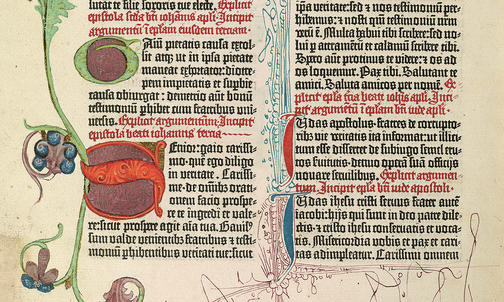 lutat te filij sororis tue electe. Explicit
epistola scda bti iohānis apli. Incipit
argumentū ī eplam eiusdem terciam.
Gaiū pietatis causa extol-
lit atqʒ ut in ipsa pietate
maneat exhortatur: diotre-
pem impietatis et superbie
causa obiurgat: demetrio aūt bonū
testimoniū phibet cum fratribus uni-
uersis. Explicit argumentum: Incipit
epistola beati iohannis tercia
Senior: gaio carissi-
mo. quē ego diligo
in veritate. Carissi-
me. de omībꝫ orati-
onem facio prospe-
re te ingredi et vale-
re: sicut prospere agit aīa tua. Gauisꝰ
sum valde venientibꝫ fratribus et testi-
moniū phibentibus veritati tue: sicut
ipa ūitate: sed et nos testimoniū per-
hibemus: et nosti qm̄ testimoniū nrm
verū ē. Multa habui tibi scribere: sed no-
lui p atramentū et calamū scribere tibi.
Spero autē protinus te videre: et os ad
os loquemur. Pax tibi. Salutant te
amici. Saluta amicos per nomen. Ex-
plicit epla tcia beati iohis apli. Inci-
pit argumentū ī eplam bti iude apli.
Iudas apostolus fratres de corrupto-
ribꝰ vie veritatis ita informat: ut illici-
tum esse de subiugo semel
seruitutis opera suū officijs
seruilibus. Explicit argumen-
tum. Incipit epla bti iude apostoli.
Iudas ihesu cristi seruus frater autē
iacobi: hijs qui sunt in deo patre dile-
ctis. et cristo ihesu conseruatis et voca-
tis. Misericordia vobis et pax et cari-
tas adimpleatur. Carissimi omnem